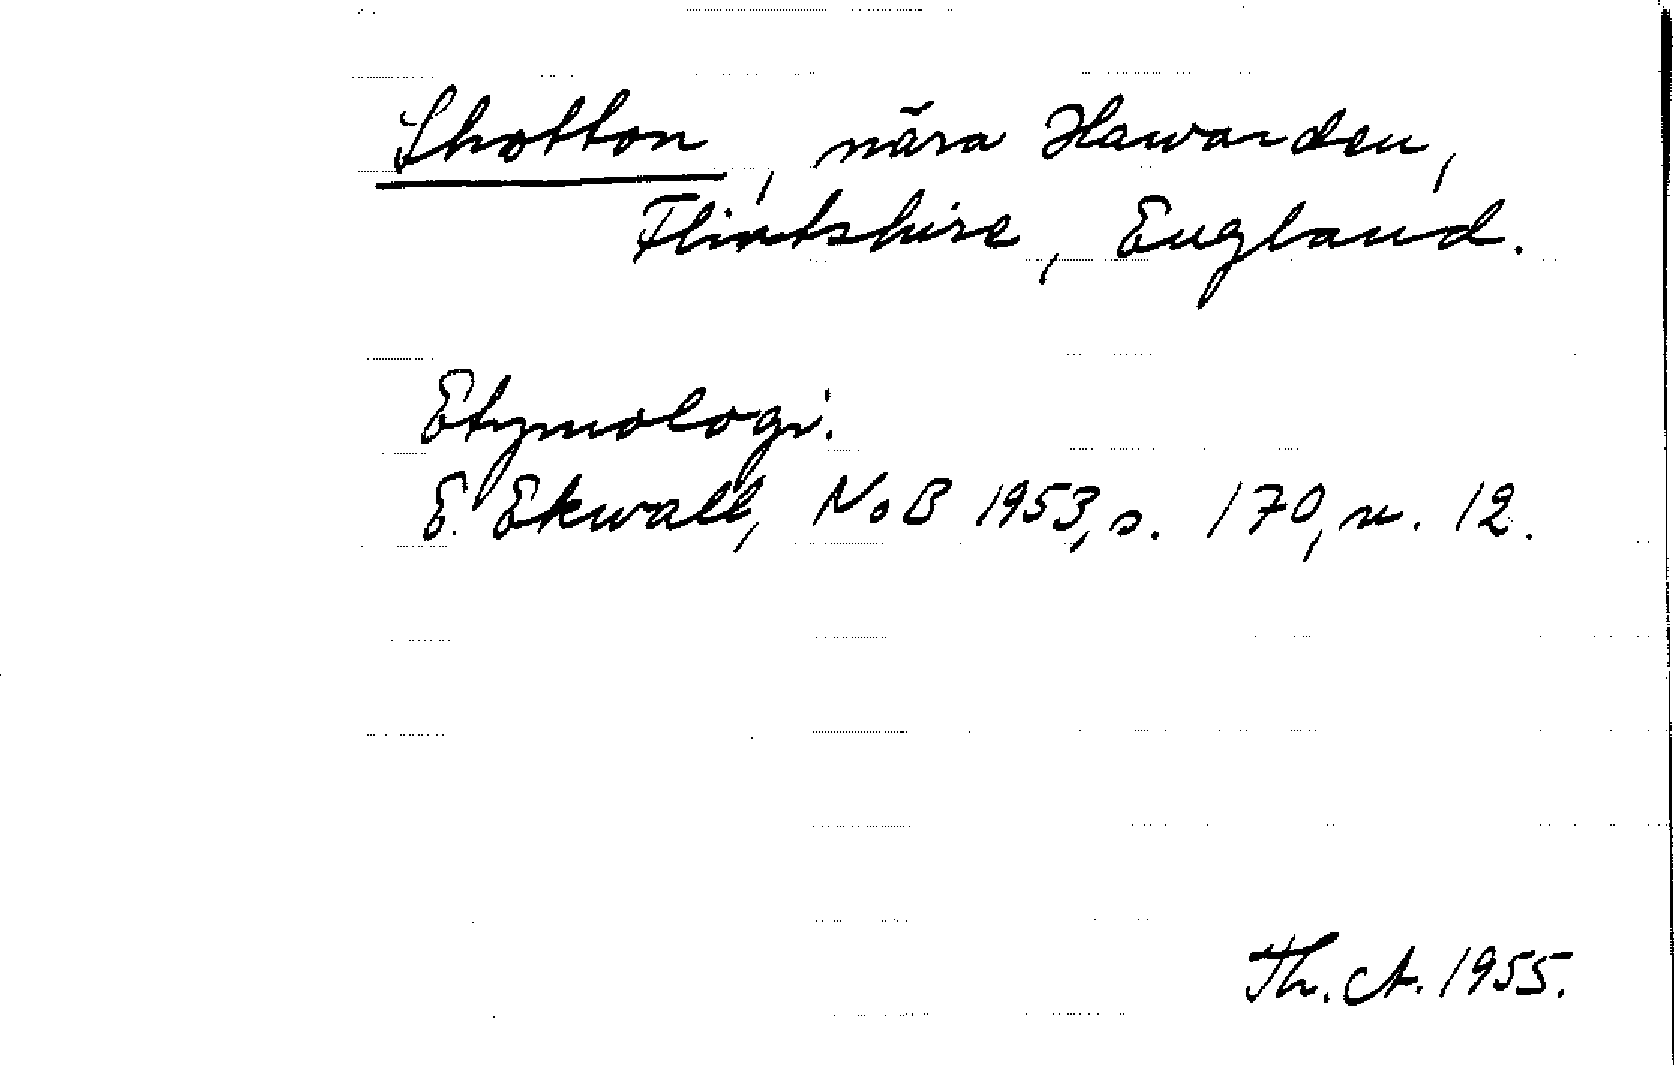 Shotton, nära Hawarden,
Flintshire, England.
Etymologi.
E. Ekwall, NoB 1953, s. 170, n. 12.
Th. A. 1955.